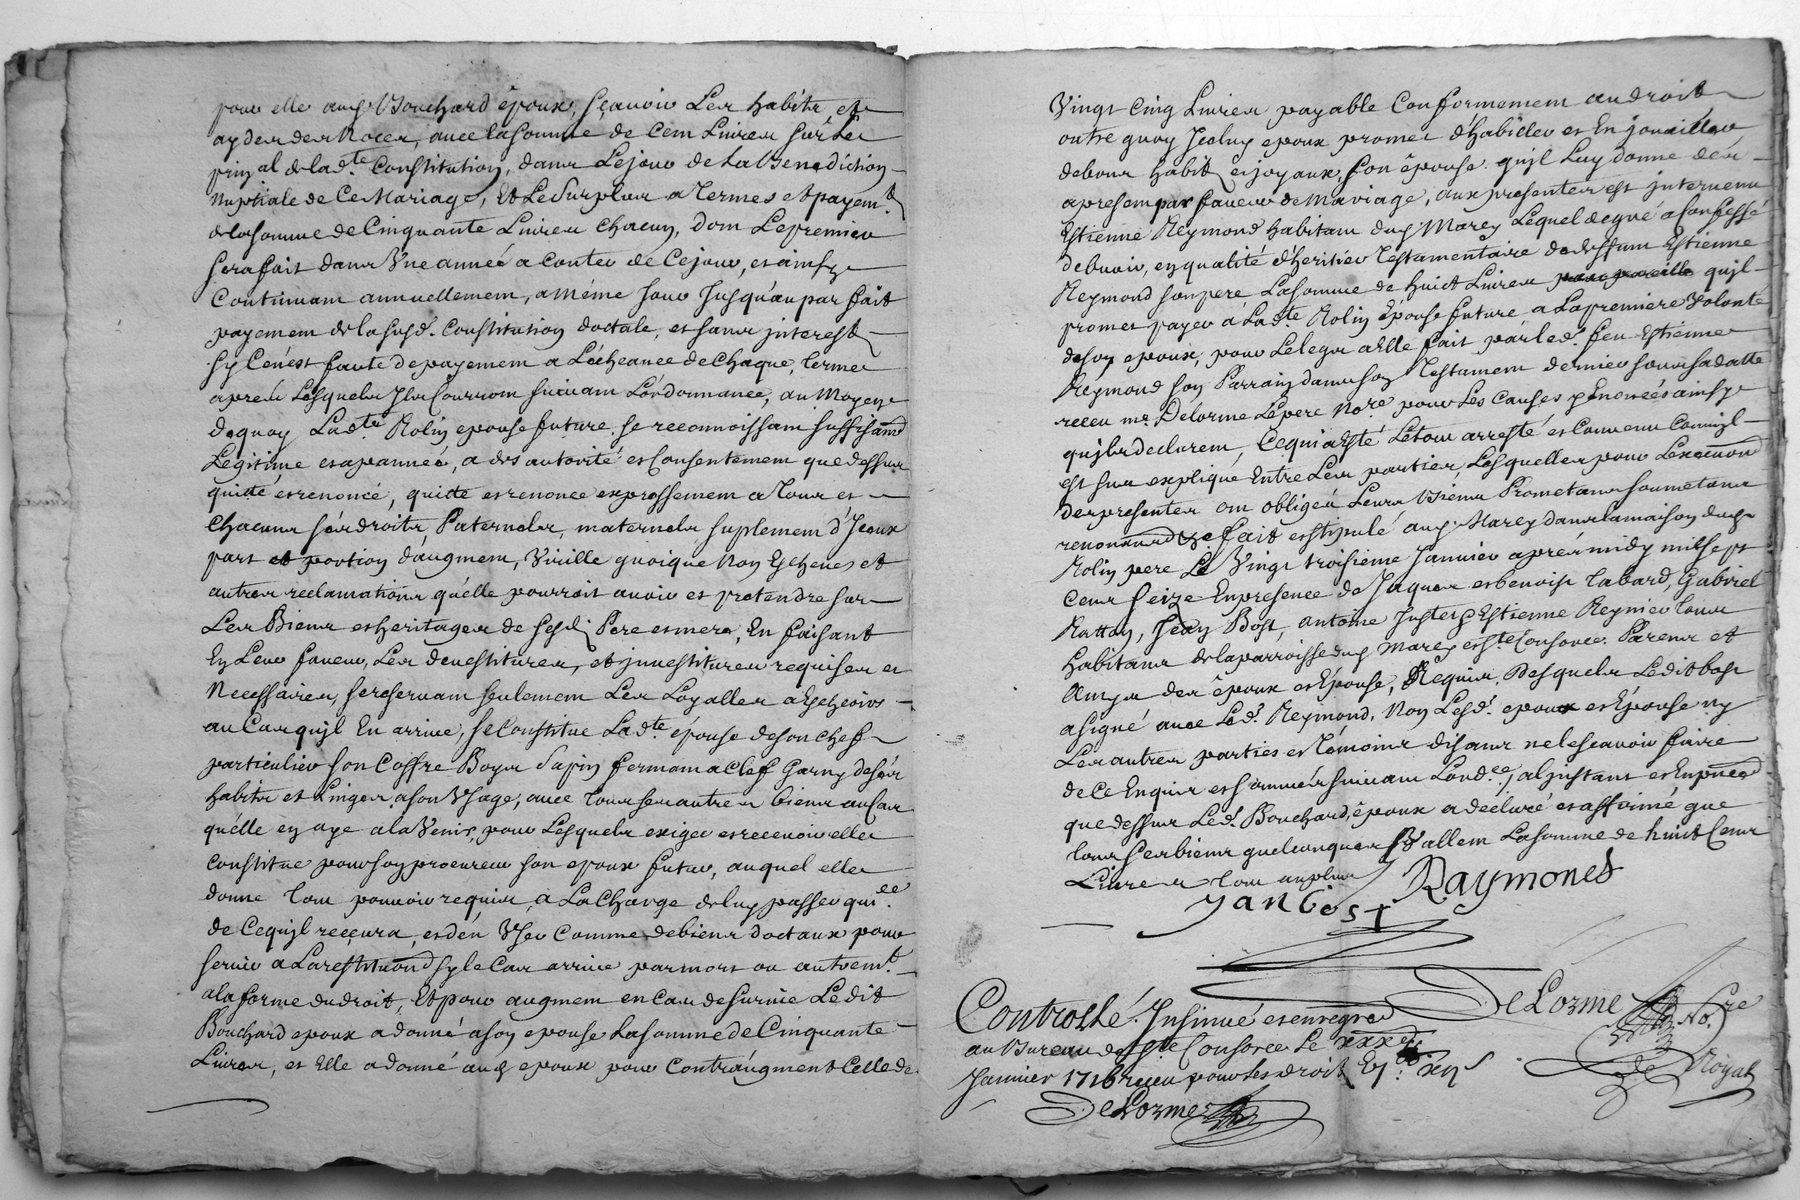 pour elle aud Bouchard époux, sçavoir Les habits et
aydes des Noces, avec la somme de Cent Livres sur Le
prinal de lad.te Constitution, dans Le jour de La Benediction
Nuptiale de Ce Mariage, Et Le surplus a Termes et payem.t
de la somme de Cinquante Livres Chacun, dont Le premier
sera fait dans Une année a Conter de Ce jour, et ainsy
Continuant annuellement, a même jour Jusqu'au parfait
payement de la susd. Constitution doctale, et sans interest
sy Ce n'est faute de payement a L'écheance de Chaque, terme
aprés Lesquels Ils Courront suivant L'ordonnance, au Moyen
de quoy Lad.te Rolin epouse future se reconnoissant suffisam
Legitime et apannée, a des autorité et Consentement que dessus
quitté et renoncé, quitte et renonce expressement a Tous et
Chacuns ses droits Paternels, maternels suplement d'Iceux
part et portion d'augment, Virille quoique Non Escheues et
autres reclamations qu'elle pourroit avoir et pretendre sur
Les Biens et heritages de sesd. Pere et mere, En faisant
En Leur faveur, Les devestitures, et investitures requises et
Necessaires, se reservant seulement Les Loyalles Escheoirs
au Cas qu'il En arrive, se Constitue Lad.te épouse de son chef
particulier son Coffre Boys Sapin fermant a Clef Garny de ses
habits et Linges, a son Usage, avec Tous ses autres biens au Cas
qu'elle en aye a la Venir, pour Lesquels exiger et recevoir elle
Constitue pour son procureur son epoux futur, auquel elle
donne Tout pouvoir requis, a La Charge de luy passer qui.ee
de Ce qu'il reçeura, et d'en User Comme de biens doctaux pour
servir a La restitution sy le Cas arrive par mort ou autrem.t
a la forme du droit, Et pour augment en Cas de survie Le dit
Bouchard epoux a donné a son epouse La somme de Cinquante
Livres, et Elle a donné aud epoux pour Contraugment Celle de
Vingt Cinq Livres payable Conformement au droit
outre quoy Iceluy epoux promet d'habiller et Enjoüailler
de bons habits et joyaux, son épouse qu'il Luy donne dés
a present par faveur de Mariage, aux presentes est intervenu
Estienne Reymond habitant dud Marey Lequel de gré a Confessé
debvoir, en qualité d'heritier Testamentaire de deffunt Estienne
Reymond son pere La somme de huict Livres qu'il
promet payer a Lad.te Rolin épouse future a La premiere Volonté
de son epoux, pour Le legs a Elle fait par led. feu Estienne
Reymond son Parrain dans son Testament dernier sous sa datte
receu m.e Delorme Le pere No.re pour Les Causes y Enoncées ainsy
qu'ils declarent, Ce qui a Esté Le tout arresté et Convenu Comm'il
est sus expliqué Entre Les parties, Lesquelles pour L'execution
des presentes ont obligés Leurs Biens Promettans soumetans
renonceans fait et stipulé aud. Marey dans la maison dud
Rolin pere Le Vingt troisieme Janvier aprés midy mil sept
Cent seize En presence de Jaques et benoist Tabard, Gabriel
Rattay, Jean Bost, antoine et Estienne Reynier Tous
habitans de la parroisse dud Marey et S.te Consorce. Parens et
Amys des époux et Épouse, Requis, Desquels Le dit bost
a signé avec Led. Reymond, Non Lesd. epoux et Épouse ny
Les autres parties et Témoins disans ne le sçavoir faire
de Ce Enquis et sommés suivant L'ord.ce, a l'instant et En pnce
que dessus Led. Bouchard époux a declaré et affirmé que
Tous ses biens quelconques Vallent La somme de huit Cent
Livres Tout au plus
yan bost Raymond
Controllé Insinué et enregré
au Bureau de S.te Consorce Le xxx
Janvier 1716 receu pour les droits
DeLorme
DeLorme No.re
Royal